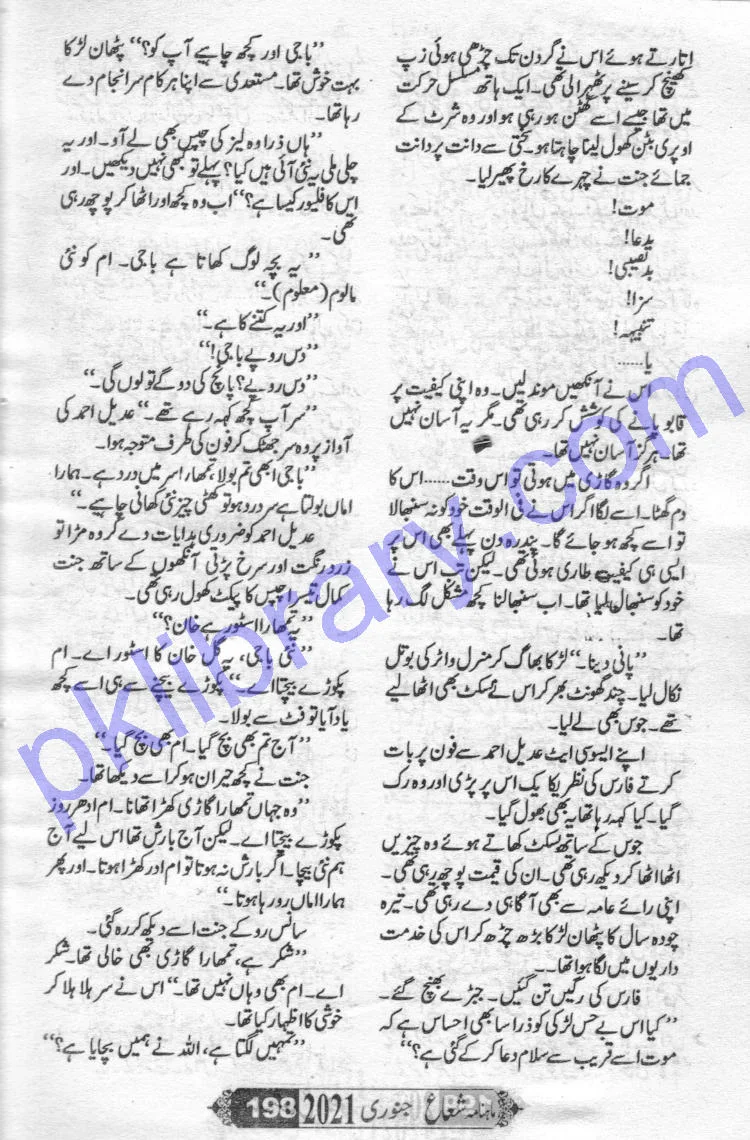 اتارتے ہوئے اس نے گردن تک چڑھی ہوئی زپ
کھینچ کر سینے پر ٹھہرالی تھی۔ ایک ہاتھ مسلسل حرکت
میں تھا جیسے اسے گھٹن ہو رہی ہو اور وہ شرٹ کے
اوپری بٹن کھول لینا چاہتا ہو۔ سختی سے دانت پر دانت
جمائے جنت نے چہرے کا رخ پھیر لیا۔
موت!
بدعا!
بدنصیبی!
سزا!
تنبیہہ!
یا......
اس نے آنکھیں موند لیں۔ وہ اپنی کیفیت پر
قابو پانے کی کوشش کر رہی تھی۔ مگر یہ آسان نہیں
تھا۔ ہرگز آسان نہیں تھا۔
اگر وہ گاڑی میں ہوتی تو اس وقت...... اس کا
دم گھٹا۔ اسے لگا اگر اس نے فی الوقت خود کو نہ سنبھالا
تو اسے کچھ ہو جائے گا۔ پندرہ دن پہلے بھی اس پر
ایسی ہی کیفیت طاری ہوئی تھی۔ لیکن تب اس نے
خود کو سنبھال لیا تھا۔ اب سنبھالنا کچھ مشکل لگ رہا
تھا۔
”پانی دینا۔“ لڑکا بھاگ کر منرل واٹر کی بوتل
نکال لیا۔ چند گھونٹ بھر کر اس نے بسکٹ بھی اٹھا لیے
تھے۔ جوس بھی لے لیا۔
اپنے ایسوسی ایٹ عدیل احمد سے فون پر بات
کرتے فارس کی نظر یکایک اس پر پڑی اور وہ رک
گیا۔ کیا کہہ رہا تھا یہ بھی بھول گیا۔
جوس کے ساتھ بسکٹ کھاتے ہوئے وہ چیزیں
اٹھا اٹھا کر دیکھ رہی تھی۔ ان کی قیمت پوچھ رہی تھی۔
اپنی رائے عامہ سے بھی آگاہی دے رہی تھی۔ تیرہ
چودہ سال کا پٹھان لڑکا بڑھ چڑھ کر اس کی خدمت
داریوں میں لگا ہوا تھا۔۔
فارس کی رگیں تن گئیں۔ جبڑے بھنچ گئے۔
”کیا اس بے حس لڑکی کو ذرا سا بھی احساس ہے کہ
موت اسے قریب سے سلام دعا کر کے گئی ہے؟“
”باجی اور کچھ چاہیے آپ کو؟“ پٹھان لڑکا
بہت خوش تھا۔ مستعدی سے اپنا ہر کام سر انجام دے
رہا تھا۔
”ہاں ذرا وہ لیز کی چپس بھی لے آؤ۔ اور یہ
چلی ملی یہ نئی آئی ہیں کیا؟ پہلے تو کبھی نہیں دیکھیں۔ اور
اس کا فلیور کیسا ہے؟“ اب وہ کچھ اور اٹھا کر پوچھ رہی
تھی۔
”یہ بچہ لوگ کھاتا ہے باجی۔ ام کو نئی
مالوم (معلوم)۔“
”اور یہ کتنے کا ہے۔“
”دس روپے باجی!“
”دس روپے؟ پانچ کی دو گے تو لوں گی۔“
”سر آپ کچھ کہہ رہے تھے۔“ عدیل احمد کی
آواز پر وہ سر جھٹک کر فون کی طرف متوجہ ہوا۔
”باجی ابھی تم بولا، تمھارا سر میں درد ہے۔ ہمارا
اماں بولتا ہے سر درد ہو تو کھٹی چیز نئی کھانی چاہیے۔“
عدیل احمد کو ضروری ہدایات دے کر وہ مڑا تو
زرد رنگت اور سرخ پڑتی آنکھوں کے ساتھ جنت
کمال تیسرا چپس کا پیکٹ کھول رہی تھی۔
”یہ تمھارا اسٹور ہے خان؟“
”نئی باجی، یہ گل خان کا اسٹور اے۔ ام
پکوڑے بیچتا اے۔“ پکوڑے بیچنے سے ہی اسے کچھ
یاد آیا تو فٹ سے بولا۔
”آج تم بھی بچ گیا۔ ام بھی بچ گیا۔“
جنت نے کچھ حیران ہو کر اسے دیکھا تھا۔
”وہ جہاں تمھارا گاڑی کھڑا تھا نا۔ ام ادھر روز
پکوڑے بیچتا اے۔ لیکن آج بارش تھا اس لیے آج
ہم نئی بیچا۔ اگر بارش نہ ہوتا تو ام ادر کھڑا ہوتا۔ اور پھر
ہمارا اماں رو رہا ہوتا۔“
سانس روکے جنت اسے دیکھ کر رہ گئی۔
”شکر ہے، تمھارا گاڑی تبھی خالی تھا۔ شکر
اے۔ ام بھی وہاں نہیں تھا۔“ اس نے سر ہلا ہلا کر
خوشی کا اظہار کیا تھا۔
”تمہیں لگتا ہے، اللہ نے ہمیں بچایا ہے؟“
ماہنامہ شعاع جنوری 2021 198
pklibrary.com